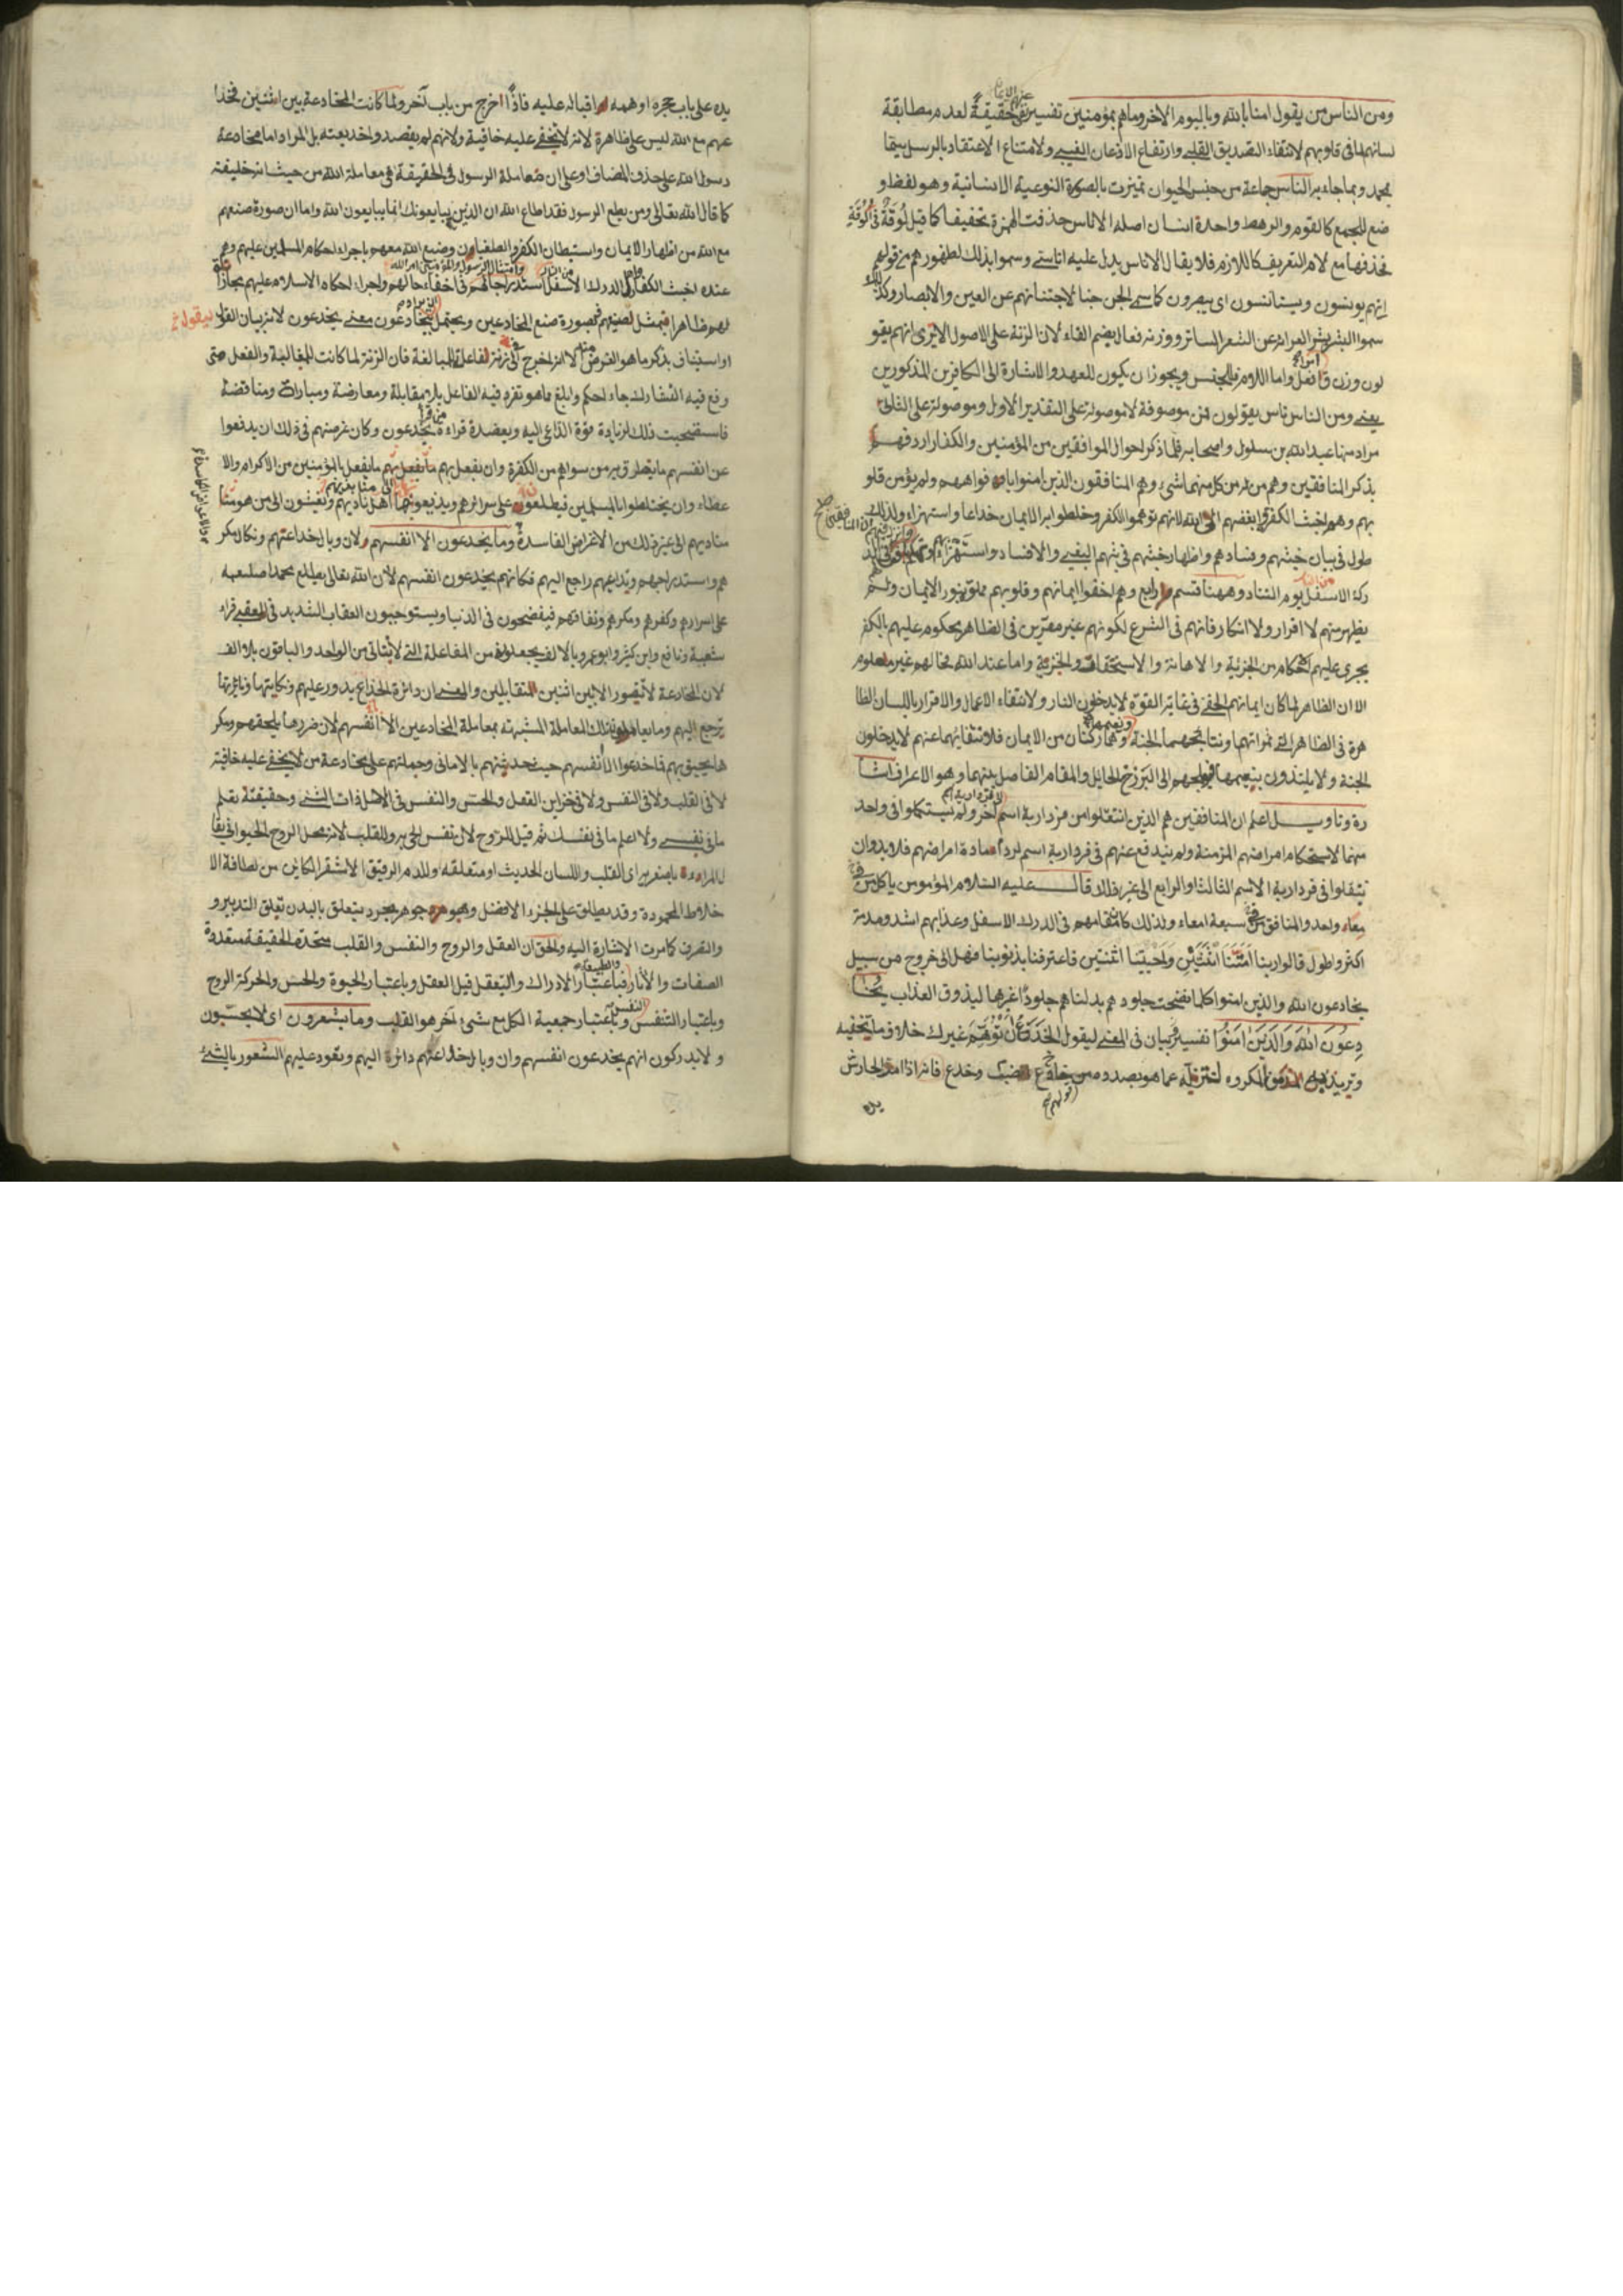 ومن الناس من يقول امنا بالله وباليوم الاخر وماهم بمؤمنين تفسير نفى حقيقة لعدم مطابقة
لسانهم لما فى قلوبهم لانتفاء التصديق القلبى وارتفاع الاذعان الغيبى ولامتناع الاعتقاد بالرسل سيما
بمحمد وبما جاء به الناس جماعة من جنس الحيوان تميزت بالصورة النوعية الانسانية وهو لفظ و
ضع للجمع كالقوم والرهط واحده انسان اصله الاناس حذفت الهمزة تخفيفا كما قيل لوقة فى الوقة
فحذفها مع لام التعريف كاللازم فلا يقال الاناس يدل عليه اناسى وسموا بذلك لظهورهم من قولهم
انهم يونسون ويستانسون اى يبصرون كما سمى الجن جنا لاجتنانهم عن العين والابصار وكذلك
سموا البشر بشرا لعرائه عن الشعر الساتر ووزنه فعال بضم الفاء لان الزنة على الاصول الا يرى انهم يقو
لون وزن ق افعل واما اللام فللجنس ويجوز ان يكون للعهد والاشارة الى الكافرين المذكورين
يعنى ومن الناس ناس يقولون فمن موصوفة لا موصولة على التقدير الاول وموصولة على الثانى
مراد منها عبد الله بن سلول واصحابه فلما ذكر احوال الموافقين من المؤمنين والكفار اردفهم
بذكر المنافقين وهم من هم من كل منهما شئ وهم المنافقون الذين امنوا بافواههم ولم يؤمن قلو
بهم وهم اخبث الكفرة وابغضهم الى الله لانهم موهوا الكفر وخلطوا به الايمان خداعا واستهزاء ولذلك
طول فى بيان خبثهم وفسادهم واظهار خبثهم فى بثهم البغى والافساد واستهزاء
ركة الاسفل يوم التناد وههنا قسم رابع وهم اخفوا ايمانهم وقلوبهم مملوة بنور الايمان ولم
يظهر منهم لا اقرار ولا انكار فانهم فى الشرع لكونهم غير مقرين فى الظاهر محكوم عليهم بالكفر
يجرى عليهم احكامه من الجزية والاهانة والاستخفاف والخزية واما عند الله فحالهم غير معلوم
الا ان الظاهر لما كان ايمانهم الخفى فى غاية القوة لا يدخلون النار ولانتفاء الاعمال والاقرار باللسان الظا
هرة فى الظاهر التى ثمراتهما ونتايجهما الجنة وهما ركنان من الايمان فلانتفائهما عنهم لا يدخلون
الجنة ولا يلتذون بنعيمها فوجههم الى البرزخ الحايل والمقام الفاصل بينهما وهو الاعراف اشا
رة وتاويل اعلم ان المنافقين هم الذين انتقلوا من فردارية اسم آخر ولم يستكملوا فى واحد
منهما لاستحكام امراضهم المزمنة ولم يندفع عنهم فى فردارية اسم لردأ مادة امراضهم فلابد وان
ينتقلوا فى فردارية الاسم الثالث او الرابع الى غير ذلك قال عليه السلام المؤمن ياكل فى
معاء واحد والمنافق فى سبعة امعاء ولذلك كان مقامهم فى الدرك الاسفل وعذابهم اشد ومدته
اكثر واطول قالوا ربنا امتنا اثنتين واحييتنا اثنتين فاعترفنا بذنوبنا فهل الى خروج من سبيل
يخادعون الله والذين امنوا كلما نضجت جلودهم بدلناهم جلودا غيرها ليذوق العذاب يخا
دعون الله والذين امنوا تفسير وبيان فى المعنى ليقول الخدع ان توهم غيرك خلاف ما تخفيه
وتريد به من المكروه لتنزله عما هو بصدده من خدع الضب وخدع فانه اذا امر الحارش
يده
يده على باب جحره اوهمه اقباله عليه فاذا اخرج من باب آخر ولما كانت المخادعة بين اثنين فخدا
عهم مع الله ليس على ظاهره لانه لا يخفى عليه خافية ولانهم لم يقصدوا خديعته بل المراد اما مخادعة
رسول الله على حذف المضاف او على ان معاملة الرسول فى الحقيقة هى معاملة الله من حيث انه خليفته
كما قال الله تعالى ومن يطع الرسول فقد اطاع الله ان الذين يبايعونك انما يبايعون الله واما ان صورة صنعهم
مع الله من اظهار الايمان واستبطان الكفر والطغيان وصنع الله معهم باجراء احكام المسلمين عليهم وهم
عنده اخبث الكفار واهل الدرك الاسفل استدراجا لهم فى اخفاء حالهم واجراء احكام الاسلام عليهم مجازاة
لهم ظاهرا فيمثل لصنيعهم بصورة صنع المخادعين ويحتمل ان يراد بيخادعون معنى يخدعون لانه بيان القول
او استيناف بذكر ما هو الغرض منه الا انه اخرج فى زنة الفاعلة للمبالغة فان الزنة لما كانت للمغالبة والفعل متى
وقع فيه التشارك جاء احكم وابلغ مما هو تفرد فيه الفاعل بلا مقابلة ومعارضة ومبارات ومناقضة
فاستصحبت ذلك لزيادة قوة الداعى اليه ويعضده قراءة من قرأ يخدعون وكان غرضهم فى ذلك ان يدفعوا
عن انفسهم ما يتطرق به من سواهم من الكفرة وان يفعل بهم ما يفعل بالمؤمنين من الاكرام والا
عطاء وان يختلطوا بالمسلمين فيطلعون على سرائرهم ويذيعونها
منابذيهم الى غير ذلك من الاغراض الفاسدة وما يخدعون الا انفسهم ولان وبال خداعتهم ونكال مكر
هم واستدراجهم وتداعيهم راجع اليهم فكانهم يخدعون انفسهم لان الله تعالى يطلع محمدا صلعم
على اسرارهم وكفرهم ومكرهم ونفاقهم فيفضحون فى الدنيا ويستوجبون العقاب الشديد فى العقبى قراء
شعبة ونافع وابن كثير وابو عمرو بالالف يجعلونه من المفاعلة التى لا يتاتى من الواحد والباقون بلا الف
لان المخادعة لا يتصور الا بين اثنين المتقابلين والمعنى ان دائرة الخداع يدور عليهم ونكايتها ونائرتها
ترجع اليهم وما يعاملون تلك المعاملة المشبهة بمعاملة المخادعين الا انفسهم لان ضررها يلحقهم ومكر
ها يحيق بهم فاخدعوا الا انفسهم حيث حدثتهم بالامانى وحملتهم على مخادعة من لا يخفى عليه خافية
لا فى القلب ولا فى النفس ولا فى خزاين العقل والحس والنفس فى الاصل ذات الشئ وحقيقته تعلم
ما فى نفسى ولا اعلم ما فى نفسك ثم قيل للروح لان نفس الحى به وللقلب لانه محل الروح الحيوانى يقا
ل المرء باصغريه اى القلب واللسان الحديث او متعلقه وللدم الرقيق الاشقر الكاين من لطافة الا
خلاط المحمودة وقد يطلق على الجزء الافضل وهو جوهر مجرد يتعلق بالبدن تعلق التدبير و
والتصرف كما مرت الاشارة اليه والحق ان العقل والروح والنفس والقلب متحدة الحقيقة متعددة
الصفات والآثار فباعتبار الادراك والتعقل قيل العقل وباعتبار الحيوة والحس والحركة الروح
وباعتبار التنفس النفس وباعتبار جمعية الكل مع شئ آخر هو القلب وما يشعرون اى لا يحسبون
ولا يدركون انهم يخدعون انفسهم وان وبال خداعهم دائرة اليهم وتعود عليهم الشعور بالشئ